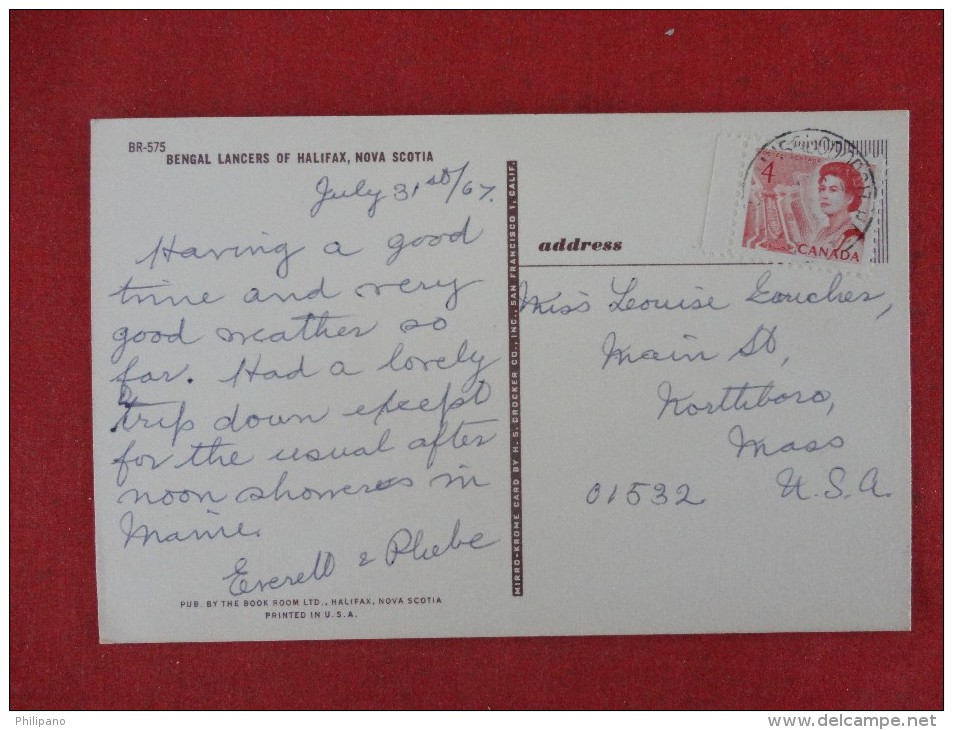 BR-575
BENGAL LANCERS OF HALIFAX, NOVA SCOTIA
July 31st/67.
Having a good
time and very
good weather so
far. Had a lovely
trip down except
for the usual after
noon showers in
Maine.
Everett & Phebe
PUB. BY THE BOOK ROOM LTD., HALIFAX, NOVA SCOTIA
PRINTED IN U.S.A.
MIRRO-KROME CARD BY H. S. CROCKER CO., INC., SAN FRANCISCO 1, CALIF.
4
CANADA
address
Miss Louise Goucher,
Main St,
Northboro,
Mass
01532 U.S.A.
Philipano
delcampe.net